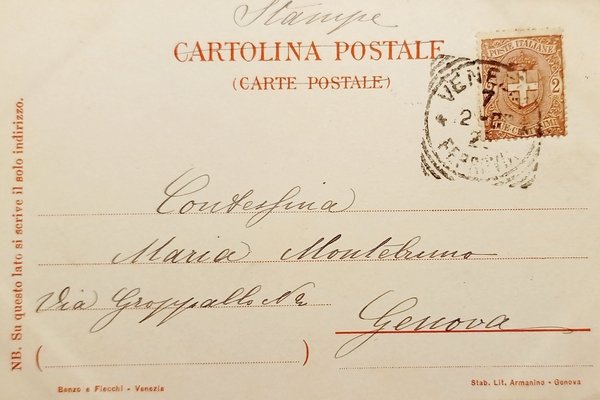 Stampe
CARTOLINA POSTALE
(CARTE POSTALE)
POSTE ITALIANE
2
VENEZIA
7
FERROVIA
NB. Su questo lato si scrive il solo indirizzo.
Contessina
Maria Montebruno
Via Groppallo
Genova
Benzo e Fiecchi - Venezia
Stab. Lit. Armanino - Genova